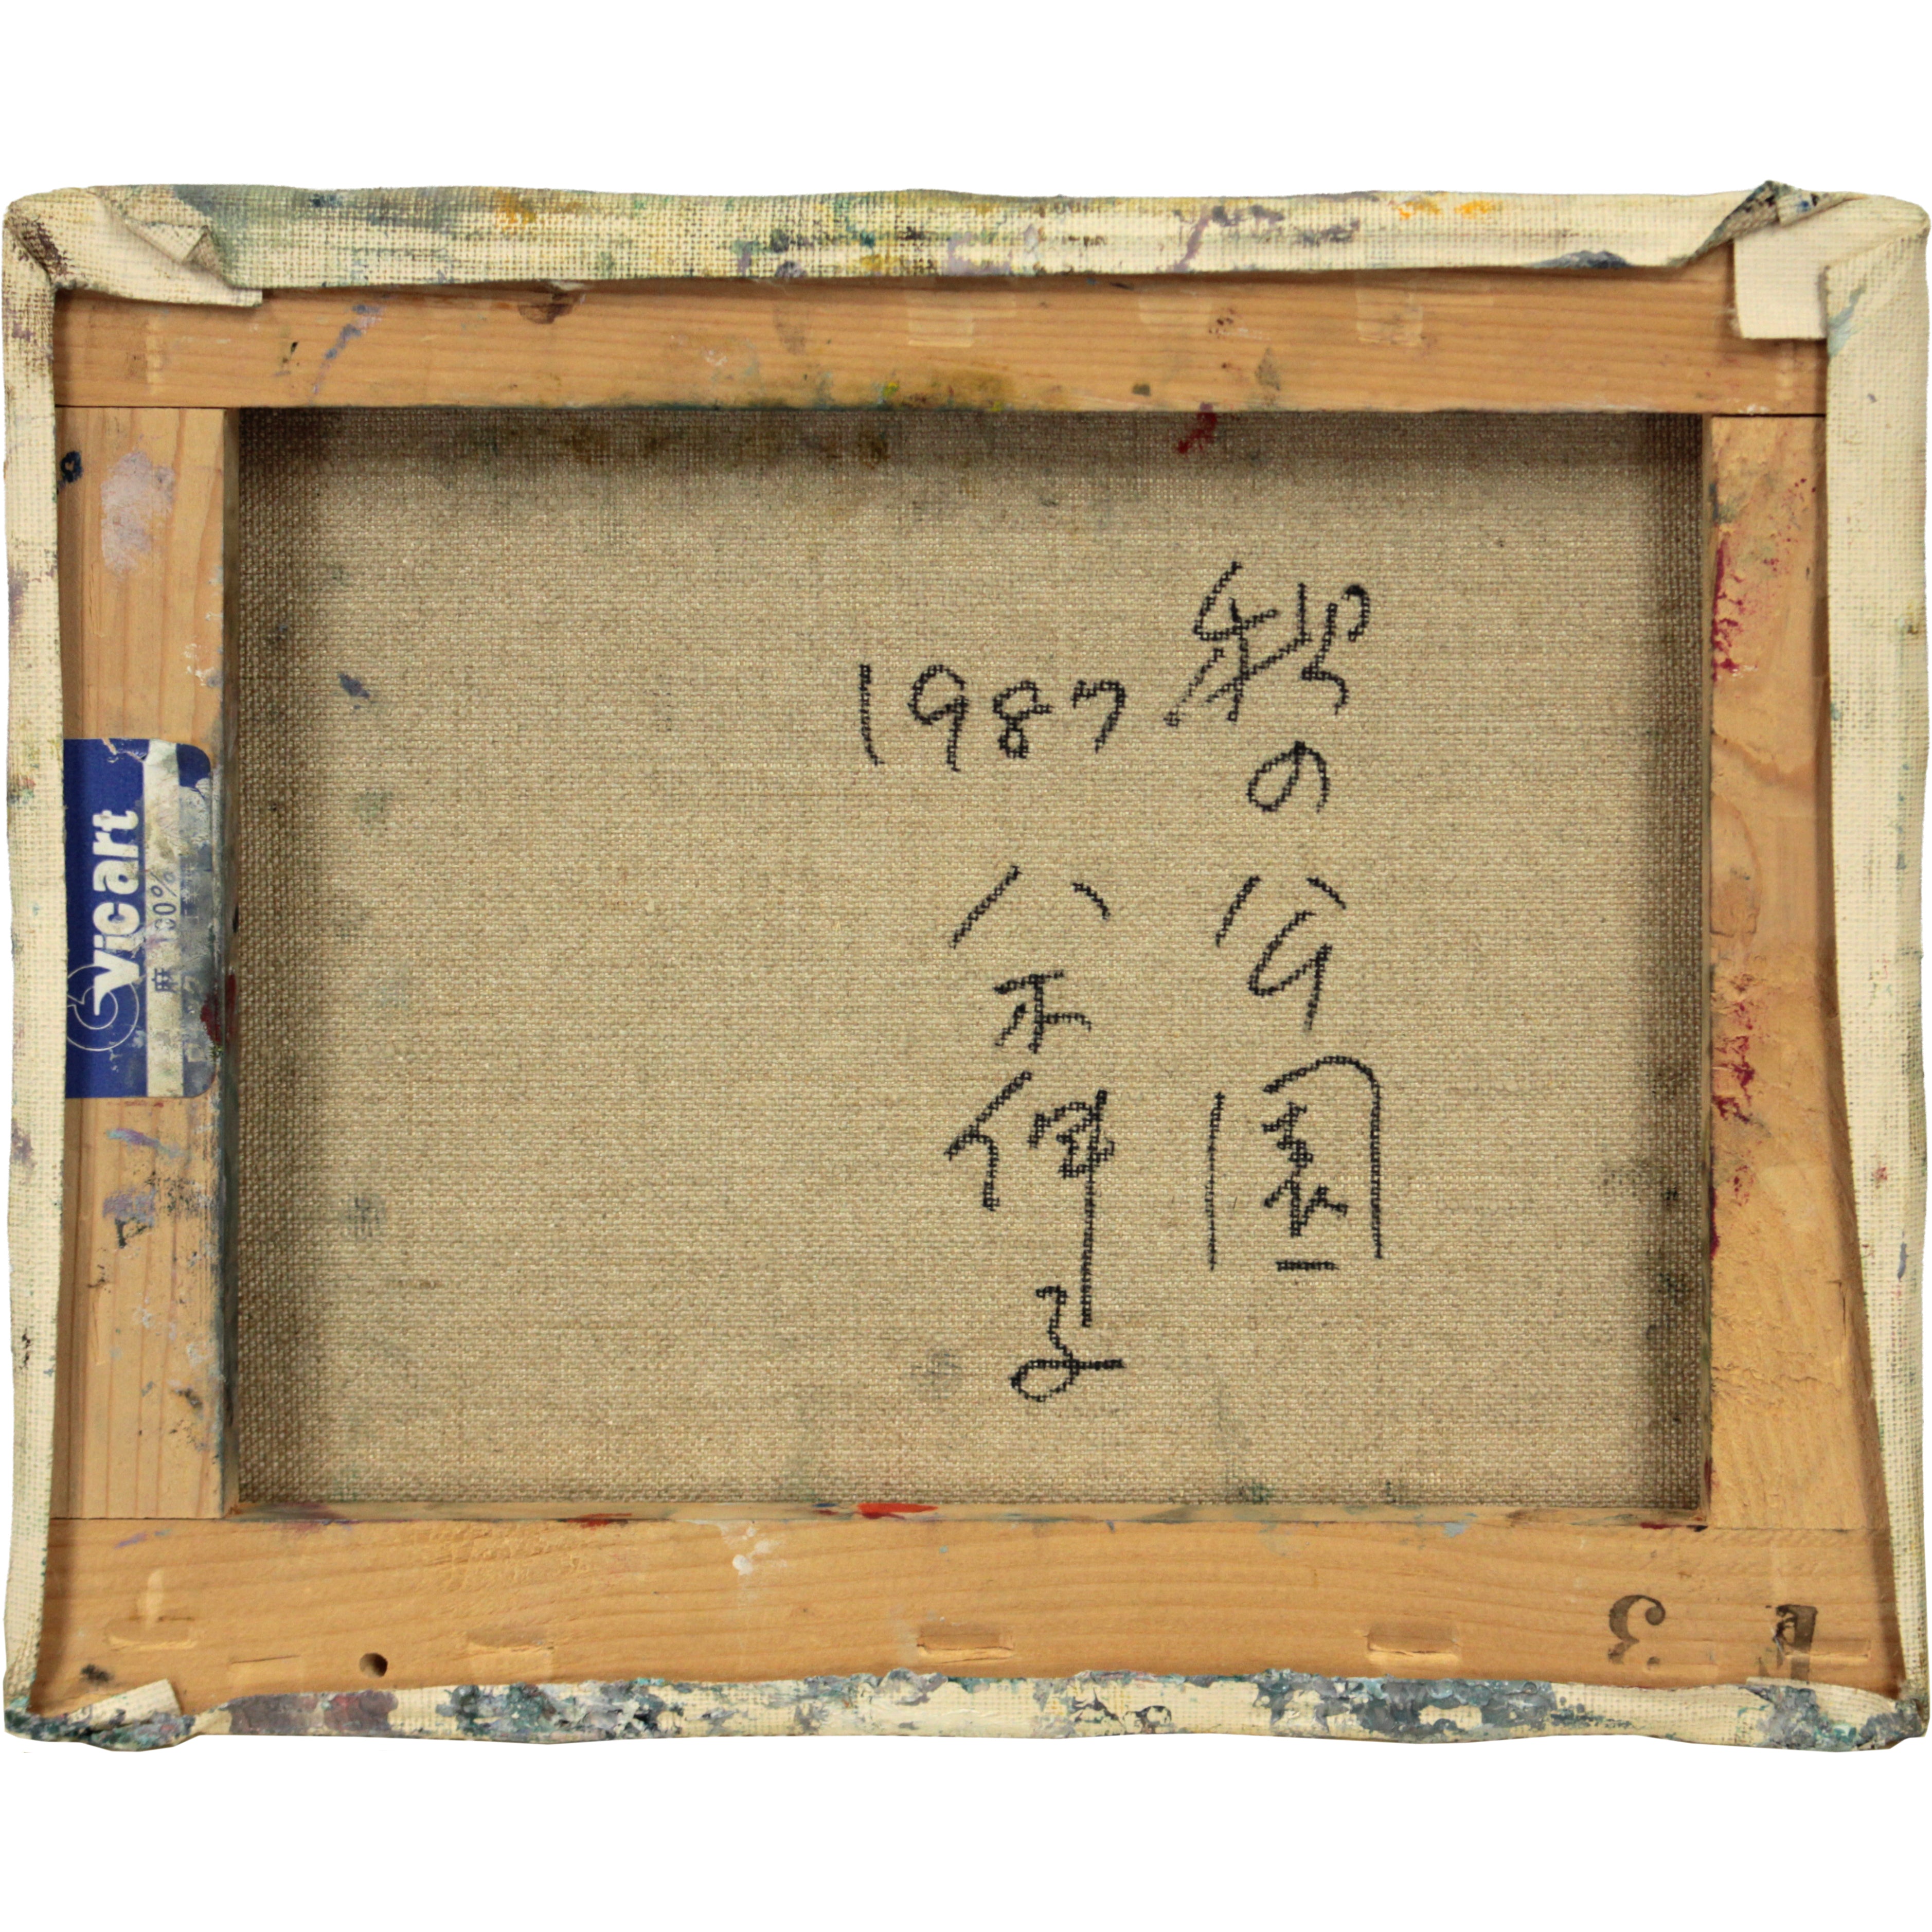 秋の公園
1987
八木伸子
Vicart
麻 100%
F 3